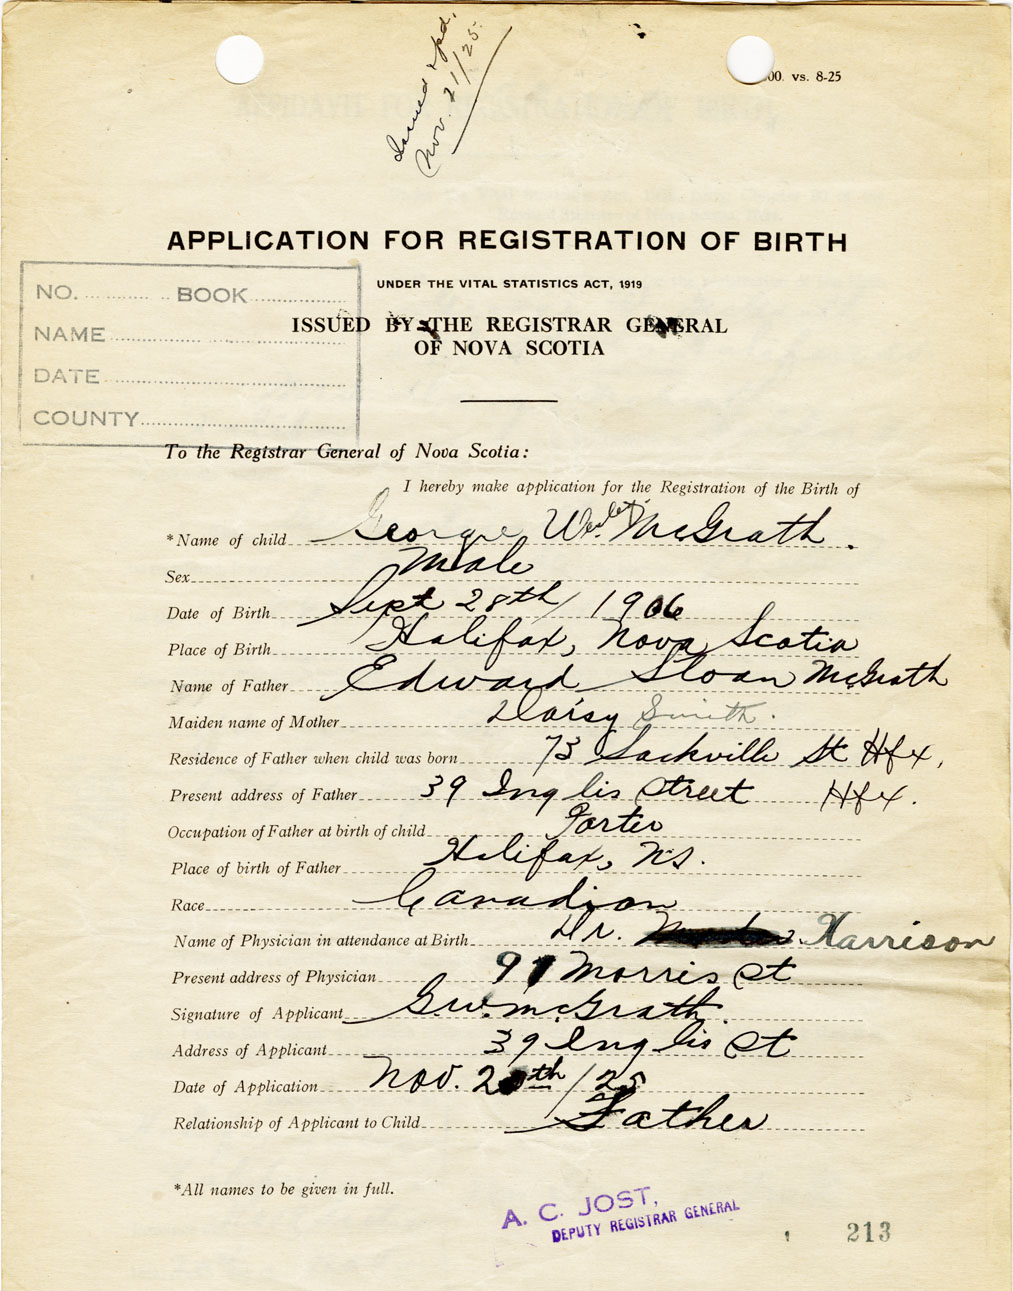 Issued & pd.
Nov. 21/25.
00. vs. 8-25
APPLICATION FOR REGISTRATION OF BIRTH
UNDER THE VITAL STATISTICS ACT, 1919
ISSUED BY THE REGISTRAR GENERAL
OF NOVA SCOTIA
NO. BOOK
NAME
DATE
COUNTY
To the Registrar General of Nova Scotia:
I hereby make application for the Registration of the Birth of
*Name of child George Wesley McGrath.
Sex Male
Date of Birth Sept 28th / 1906
Place of Birth Halifax, Nova Scotia
Name of Father Edward Sloan McGrath
Maiden name of Mother Daisy Smith.
Residence of Father when child was born 73 Sackville St Hfx.
Present address of Father 39 Inglis Street Hfx.
Occupation of Father at birth of child Porter
Place of birth of Father Halifax, N.S.
Race Canadian
Name of Physician in attendance at Birth Dr. Harrison
Present address of Physician 91 Morris St
Signature of Applicant G.W. McGrath.
Address of Applicant 39 Inglis St
Date of Application Nov. 20th / 25
Relationship of Applicant to Child Father
*All names to be given in full.
A. C. JOST,
DEPUTY REGISTRAR GENERAL
213